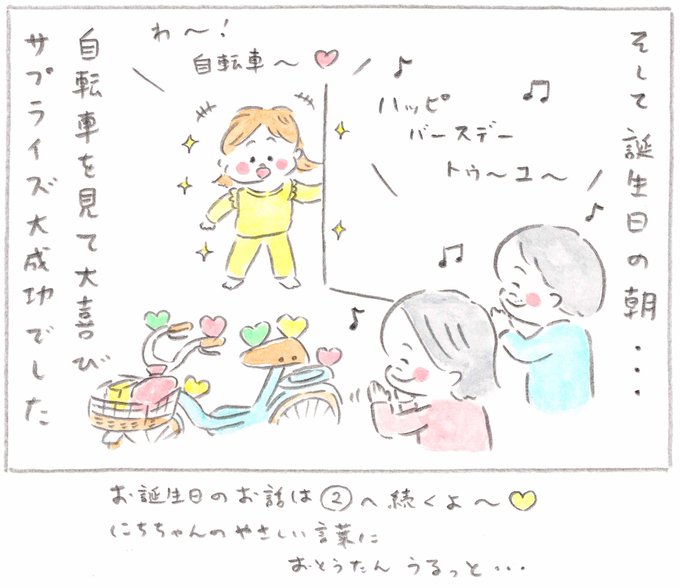 そして誕生日の朝・・・
ハッピ
バースデー
トゥ〜ユ〜
わ〜！
自転車〜
自転車を見て大喜び
サプライズ大成功でした
お誕生日のお話は②へ続くよ〜
にちちゃんのやさしい言葉に
おとうたん うるっと・・・